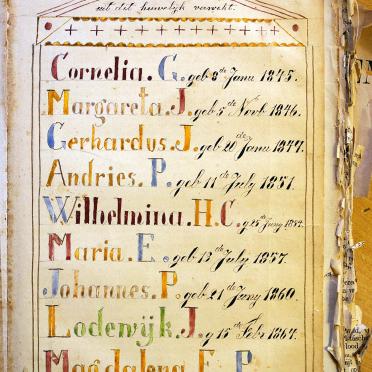 uit dit huwelijk verwekt.
Cornelia. G. geb 8ste Janu 1845.
Margareta. J. geb 5de Novb 1846.
Gerhardus. J. geb 20 Janu 1847.
Andries. P. geb 11de July 1851.
Wilhelmina. H. C. g 25ste Juny 1854.
Maria. E. geb 13de July 1857.
Johannes. P. geb 21ste Juny 1860.
Lodewijk. J. g 15de Febr 1864.
Magdalena. E. P.